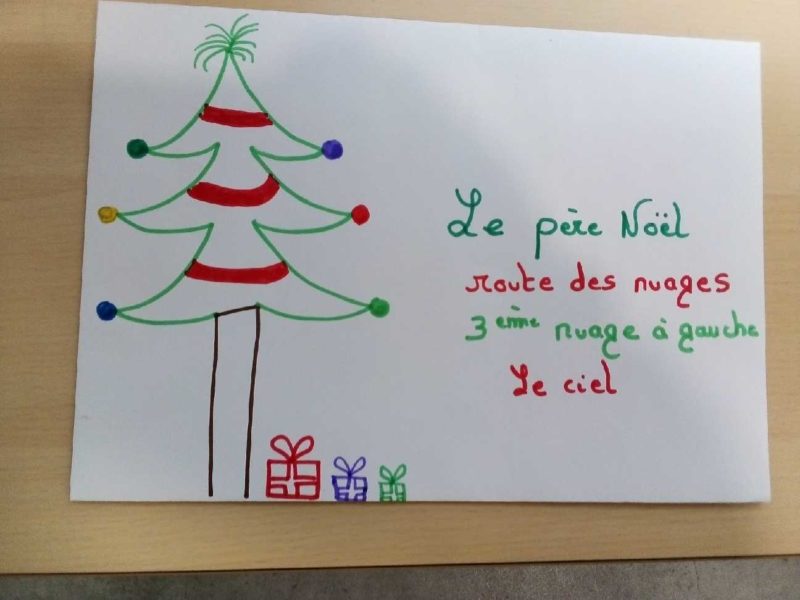 Le père Noël
route des nuages
3ème nuage à gauche
Le ciel